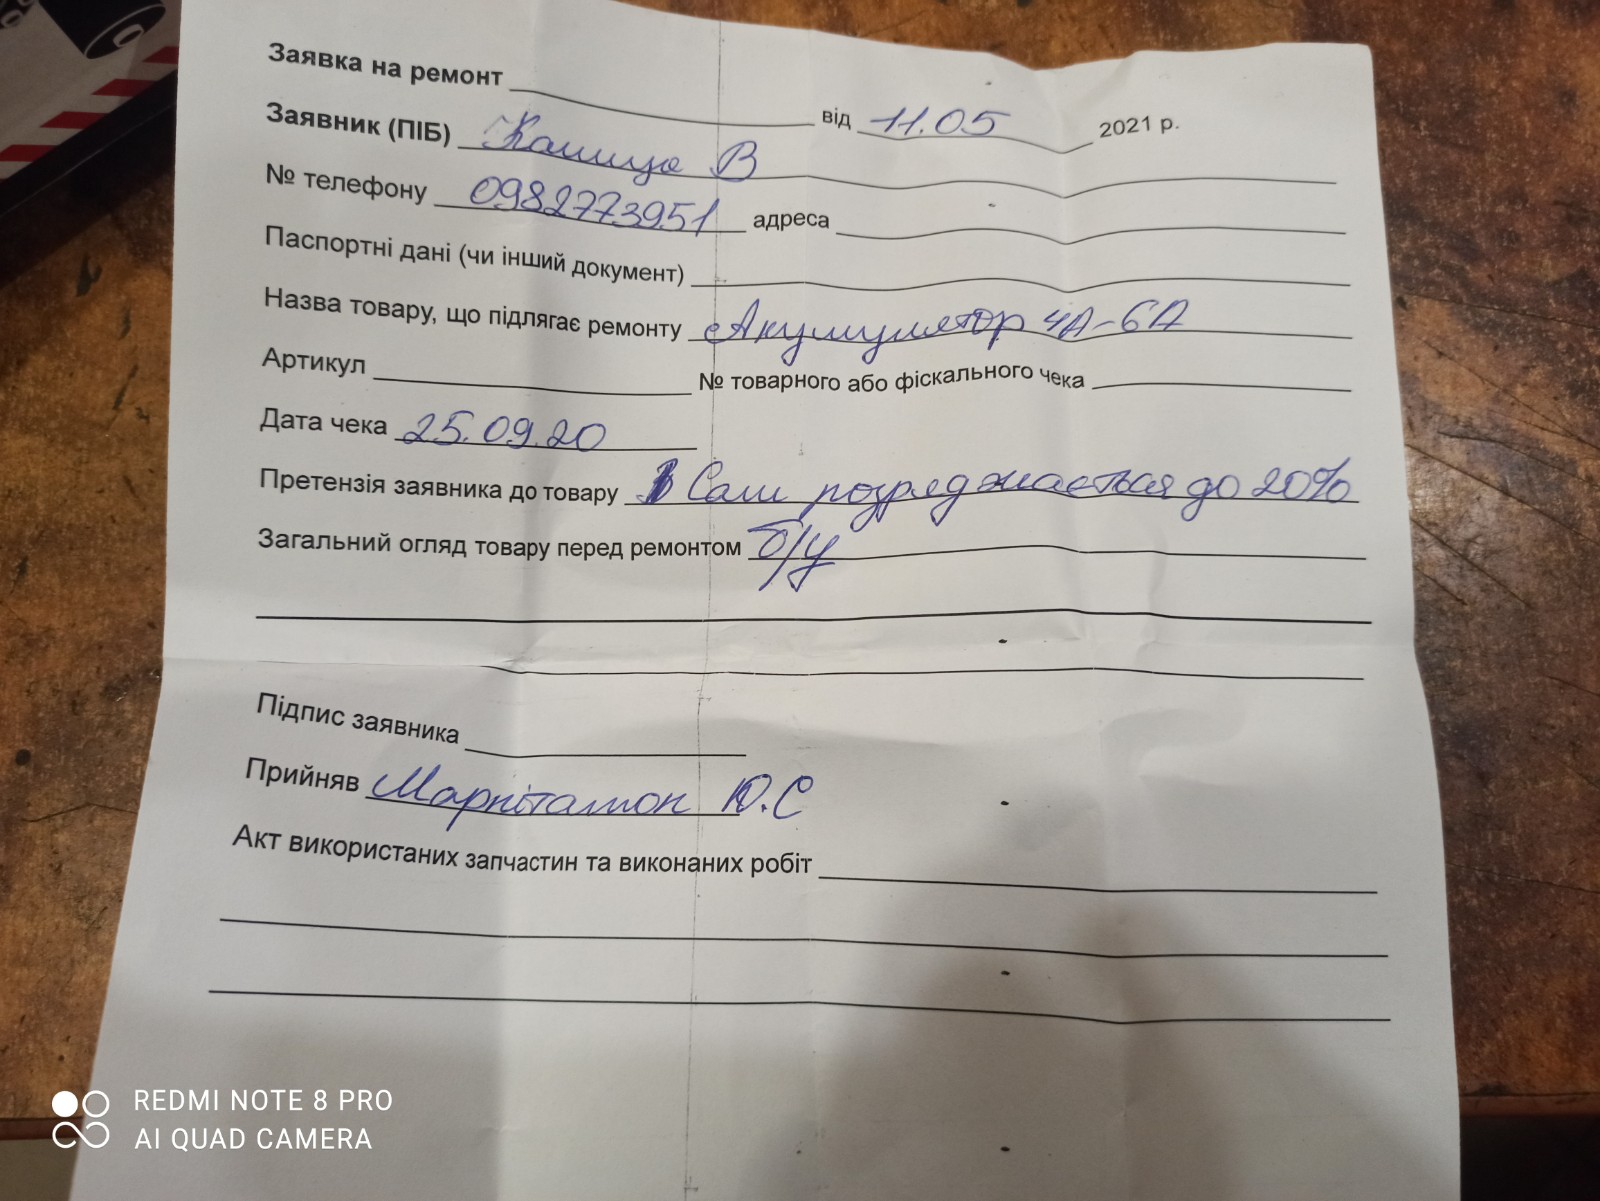 Заявка на ремонт від 11.05 2021 р.
Заявник (ПІБ) В
№ телефону 0982773951 адреса
Паспортні дані (чи інший документ)
Назва товару, що підлягає ремонту Акумулятор 4А-6А
Артикул № товарного або фіскального чека
Дата чека 25.09.20
Претензія заявника до товару Сам розряджається до 20%
Загальний огляд товару перед ремонтом б/у
Підпис заявника
Прийняв Ю.С
Акт використаних запчастин та виконаних робіт
REDMI NOTE 8 PRO
AI QUAD CAMERA